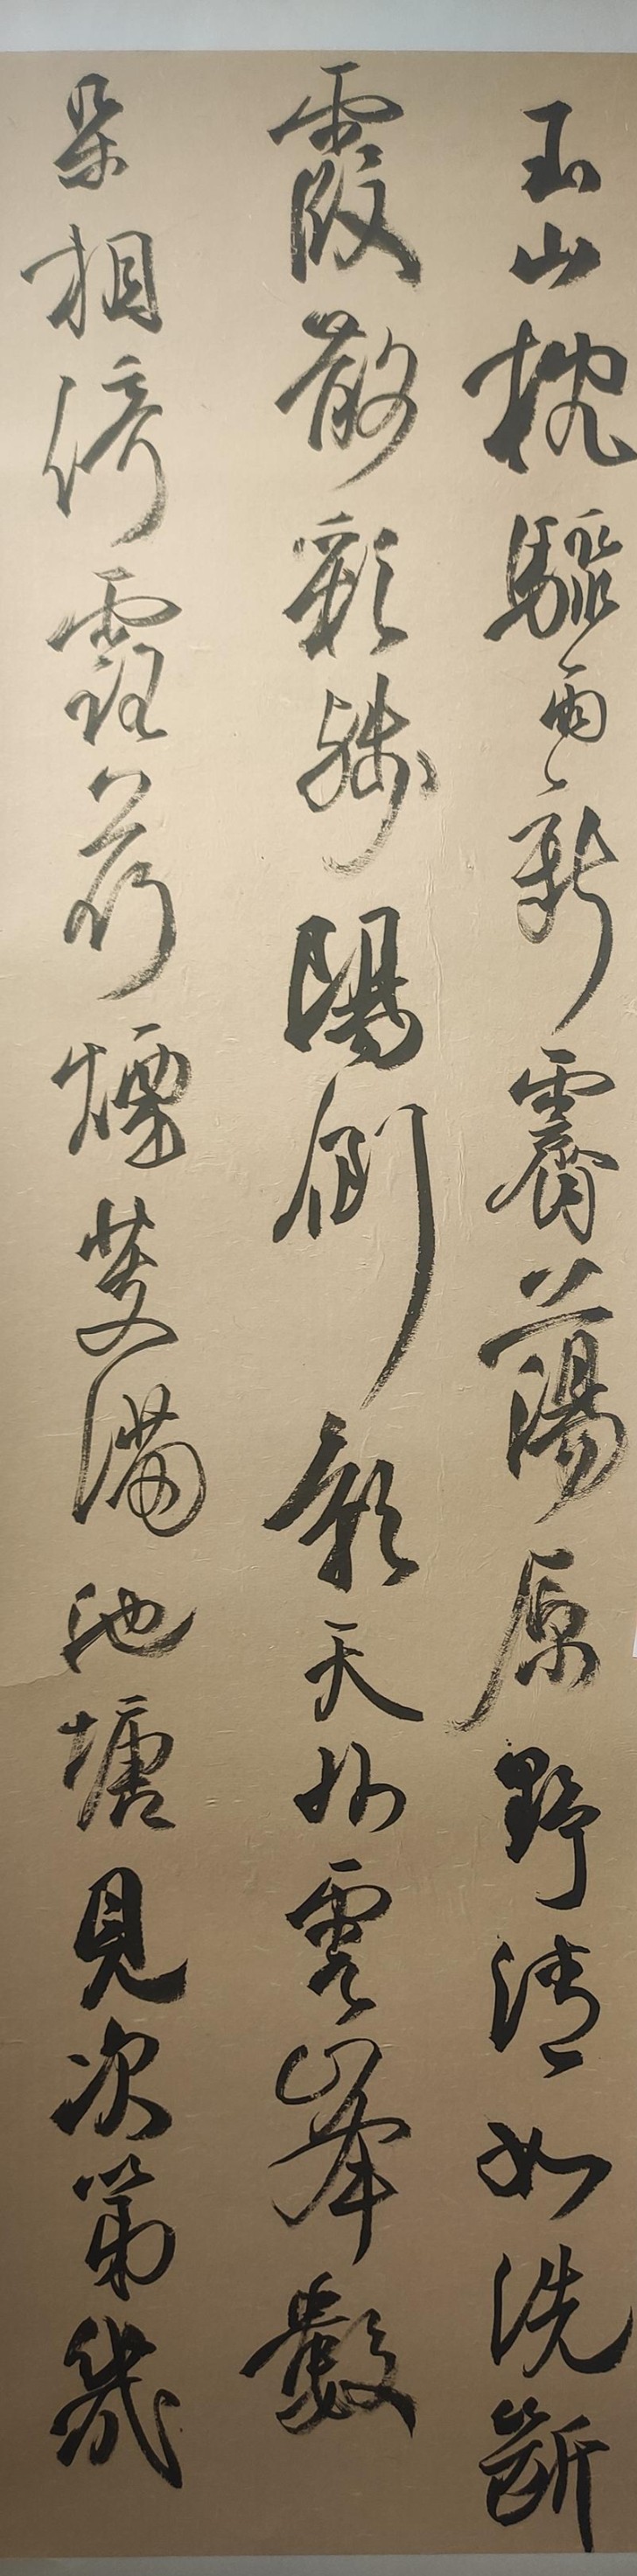 玉山枕驟雨新霽蕩原野清如洗斷
霞散彩殘陽倒影天外雲峯數
朵相倚露荷煙芰滿池塘見次第幾